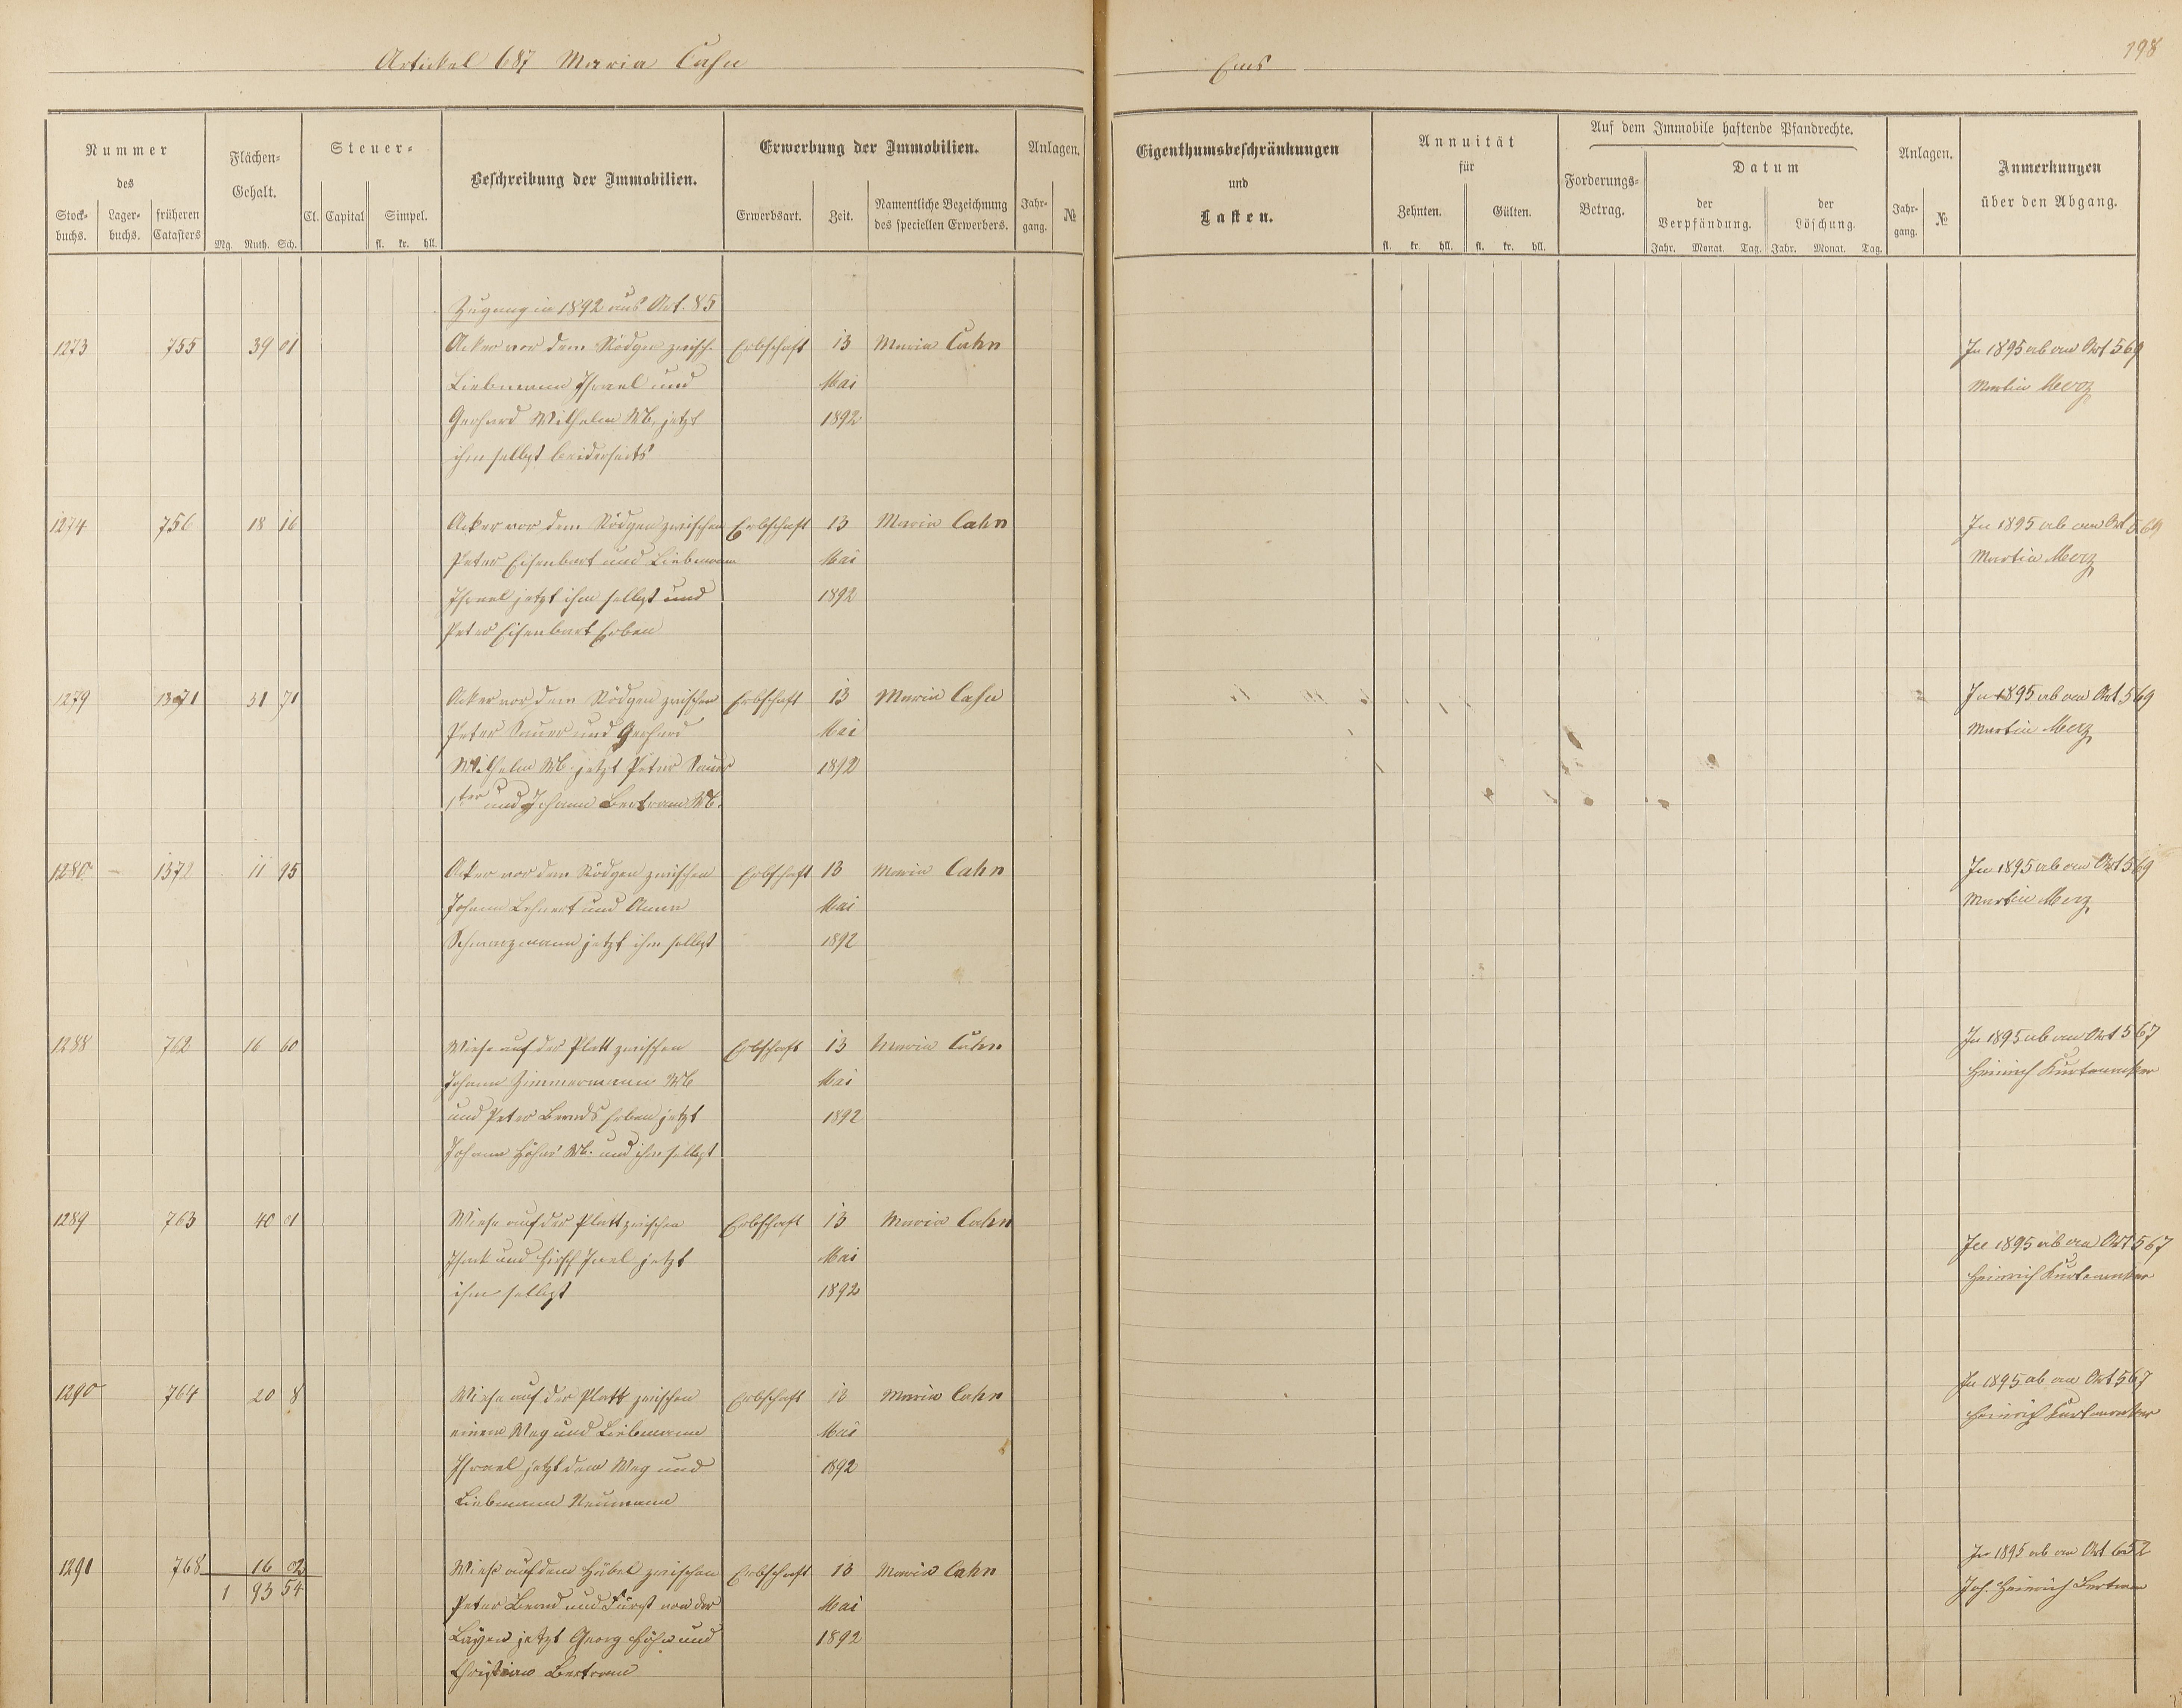 Artickel 687 Maria Cahn
Ems
198
Nummer
des
Stock-
buchs.
Lager-
buchs.
früheren
Catasters
Flächen-
Gehalt.
Mg. Ruth. Sch.
Steuer-
Cl. Capital Simpel.
fl. kr. hll.
Beschreibung der Immobilien.
Erwerbung der Immobilien.
Erwerbsart. Zeit.
Namentliche Bezeichnung
des speciellen Erwerbers.
Anlagen.
Jahr-
gang.
№
Eigenthumsbeschränkungen
und
Lasten.
Annuität
für
Zehnten. Gülten.
fl. kr. hll. fl. kr. hll.
Auf dem Immobile haftende Pfandrechte.
Forderungs-
Betrag.
Datum
der
Verpfändung.
der
Löschung.
Jahr. Monat. Tag. Jahr. Monat. Tag.
Anlagen.
Jahr-
gang.
№
Anmerkungen
über den Abgang.
Zugang in 1892 aus Art. 85
1273 755 39 01 Acker vor dem Rödgen zwisch. Erbschaft 13 Maria Cahn In 1895 ab an Art 569
Liebmann Israel und Mai Martin Merz
Gerhard Wilhelm Wb. jetzt 1892
ihm selbst beiderseits
1274 756 18 16 Acker vor dem Rödgen zwischen Erbschaft 13 Maria Cahn In 1895 ab an Art 569
Peter Eisenbart und Liebmann Mai Martin Merz
Israel jetzt ihm selbst und 1892
Peter Eisenbart Erben
1279 1371 31 71 Acker vor dem Rödgen zwischen Erbschaft 13 Maria Cahn In 1895 ab an Art 569
Peter Sauer und Gerhard Mai Martin Merz
Wilhelm Wb. jetzt Peter Sauer 1892
1ter und Johann Bertram Wb.
1280 1372 11 95 Acker vor dem Rödgen zwischen Erbschaft 13 Maria Cahn In 1895 ab an Art 569
Johann Lehnert und Anna Mai Martin Merz
Schwarzmann jetzt ihm selbst 1892
1288 762 16 60 Wiese auf der Platt zwischen Erbschaft 13 Maria Cahn In 1895 ab an Art 567
Johann Zimmermann Wb Mai Heinrich
und Peter Bernds Erben jetzt 1892
Johann Höhns Wb. und ihm selbst
1289 763 40 01 Wiese auf der Platt zwischen Erbschaft 13 Maria Cahn In 1895 ab an Art 567
und Hirsch jetzt Mai Heinrich
ihm selbst 1892
1290 764 20 8 Wiese auf der Platt zwischen Erbschaft 13 Maria Cahn In 1895 ab an Art 567
einem Weg und Liebmann Mai Heinrich
Israel jetzt dem Weg und 1892
Liebmann Neumann
1291 768 16 02 Wiese auf dem Hübel zwischen Erbschaft 13 Maria Cahn In 1895 ab an Art 652
1 93 54 Peter Bernd und Fürst von der Mai Joh. Heinrich Bertram
Layen jetzt Georg Höhn und 1892
Christian Bertram